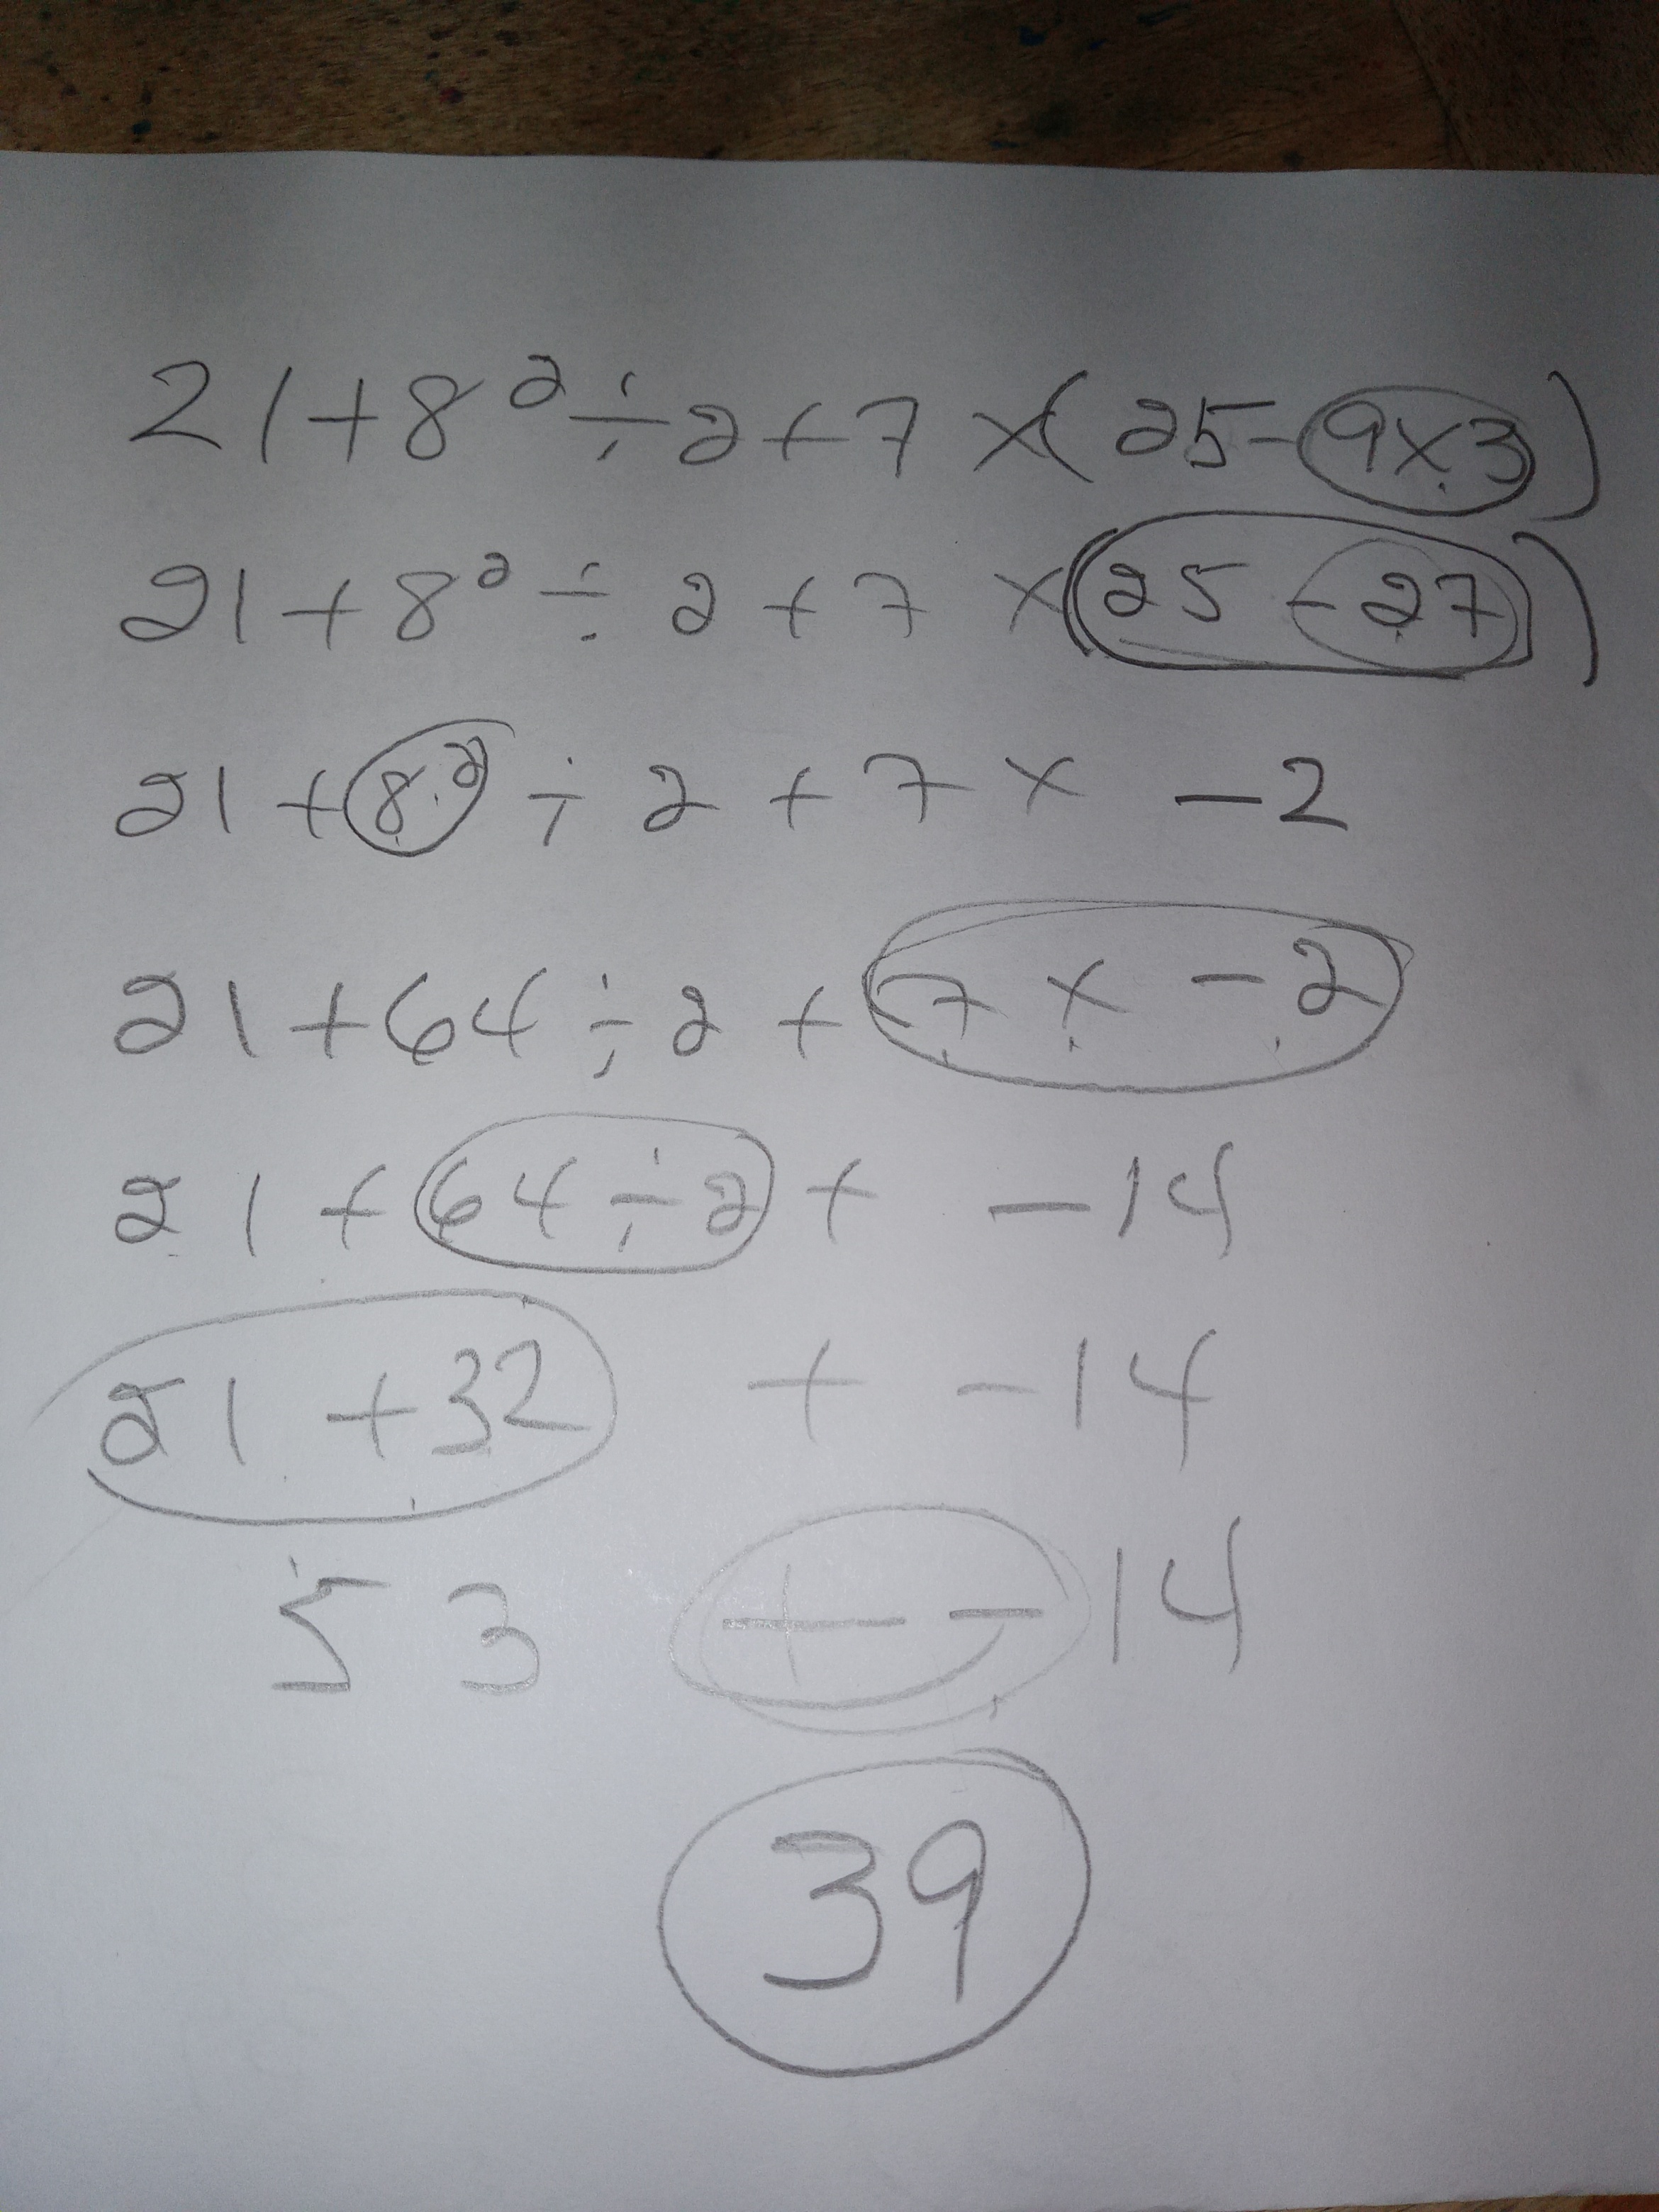 21+8²÷2+7×(25-9×3)
21+8²÷2+7×(25-27)
21+8²÷2+7×-2
21+64÷2+7×-2
21+64÷2+-14
21+32+-14
53+-14
39